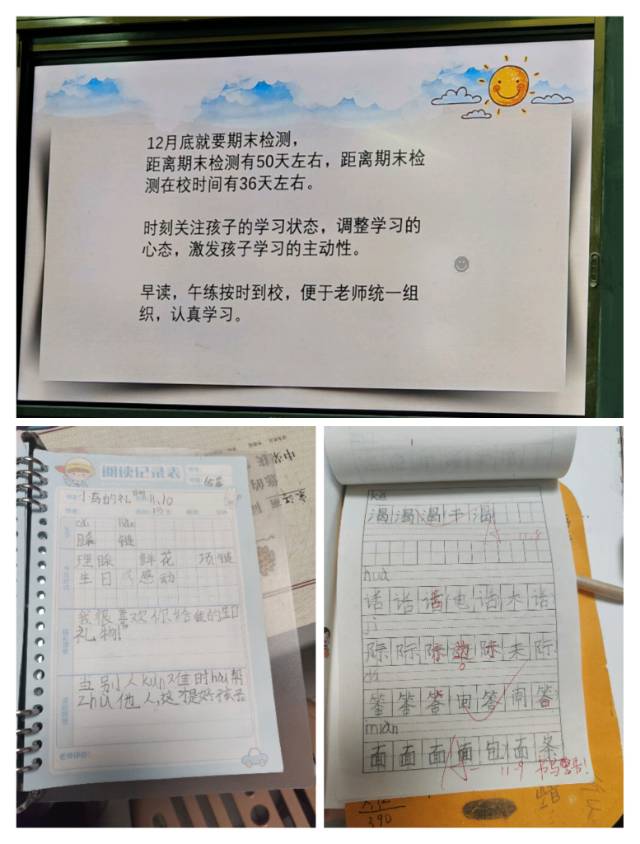 12月底就要期末检测，
距离期末检测有50天左右，距离期末检
测在校时间有36天左右。
时刻关注孩子的学习状态，调整学习的
心态，激发孩子学习的主动性。
早读，午练按时到校，便于老师统一组
织，认真学习。
阅读记录表
11.10
脸 链
理睬 鲜花 项链
生日 感动
我很喜欢你给我的生日
礼物
当别人kun难时hai帮
zhu他人,这才是好孩子
ke
渴渴渴干渴
11-8
huà
话话话电话木话
jì
际际际边际天际
dá
答答答回答问答
miàn
面面面面包面条
11-9 书写警告!
390